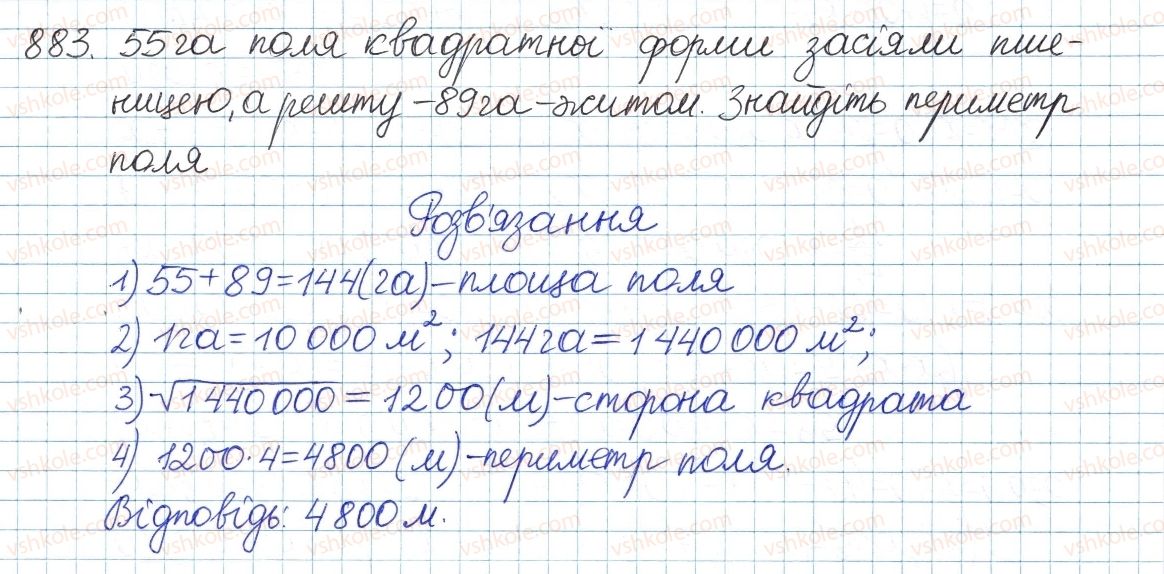 883. 55га поля квадратної форми засіяли пше-
ницею, а решту - 89га - житом. Знайдіть периметр
поля
Розв'язання
1) 55+89=144(га) - площа поля
2) 1га = 10 000 м²; 144га = 1 440 000 м²;
3) √1 440 000 = 1200(м) - сторона квадрата
4) 1200·4=4800 (м) - периметр поля.
Відповідь: 4800м.